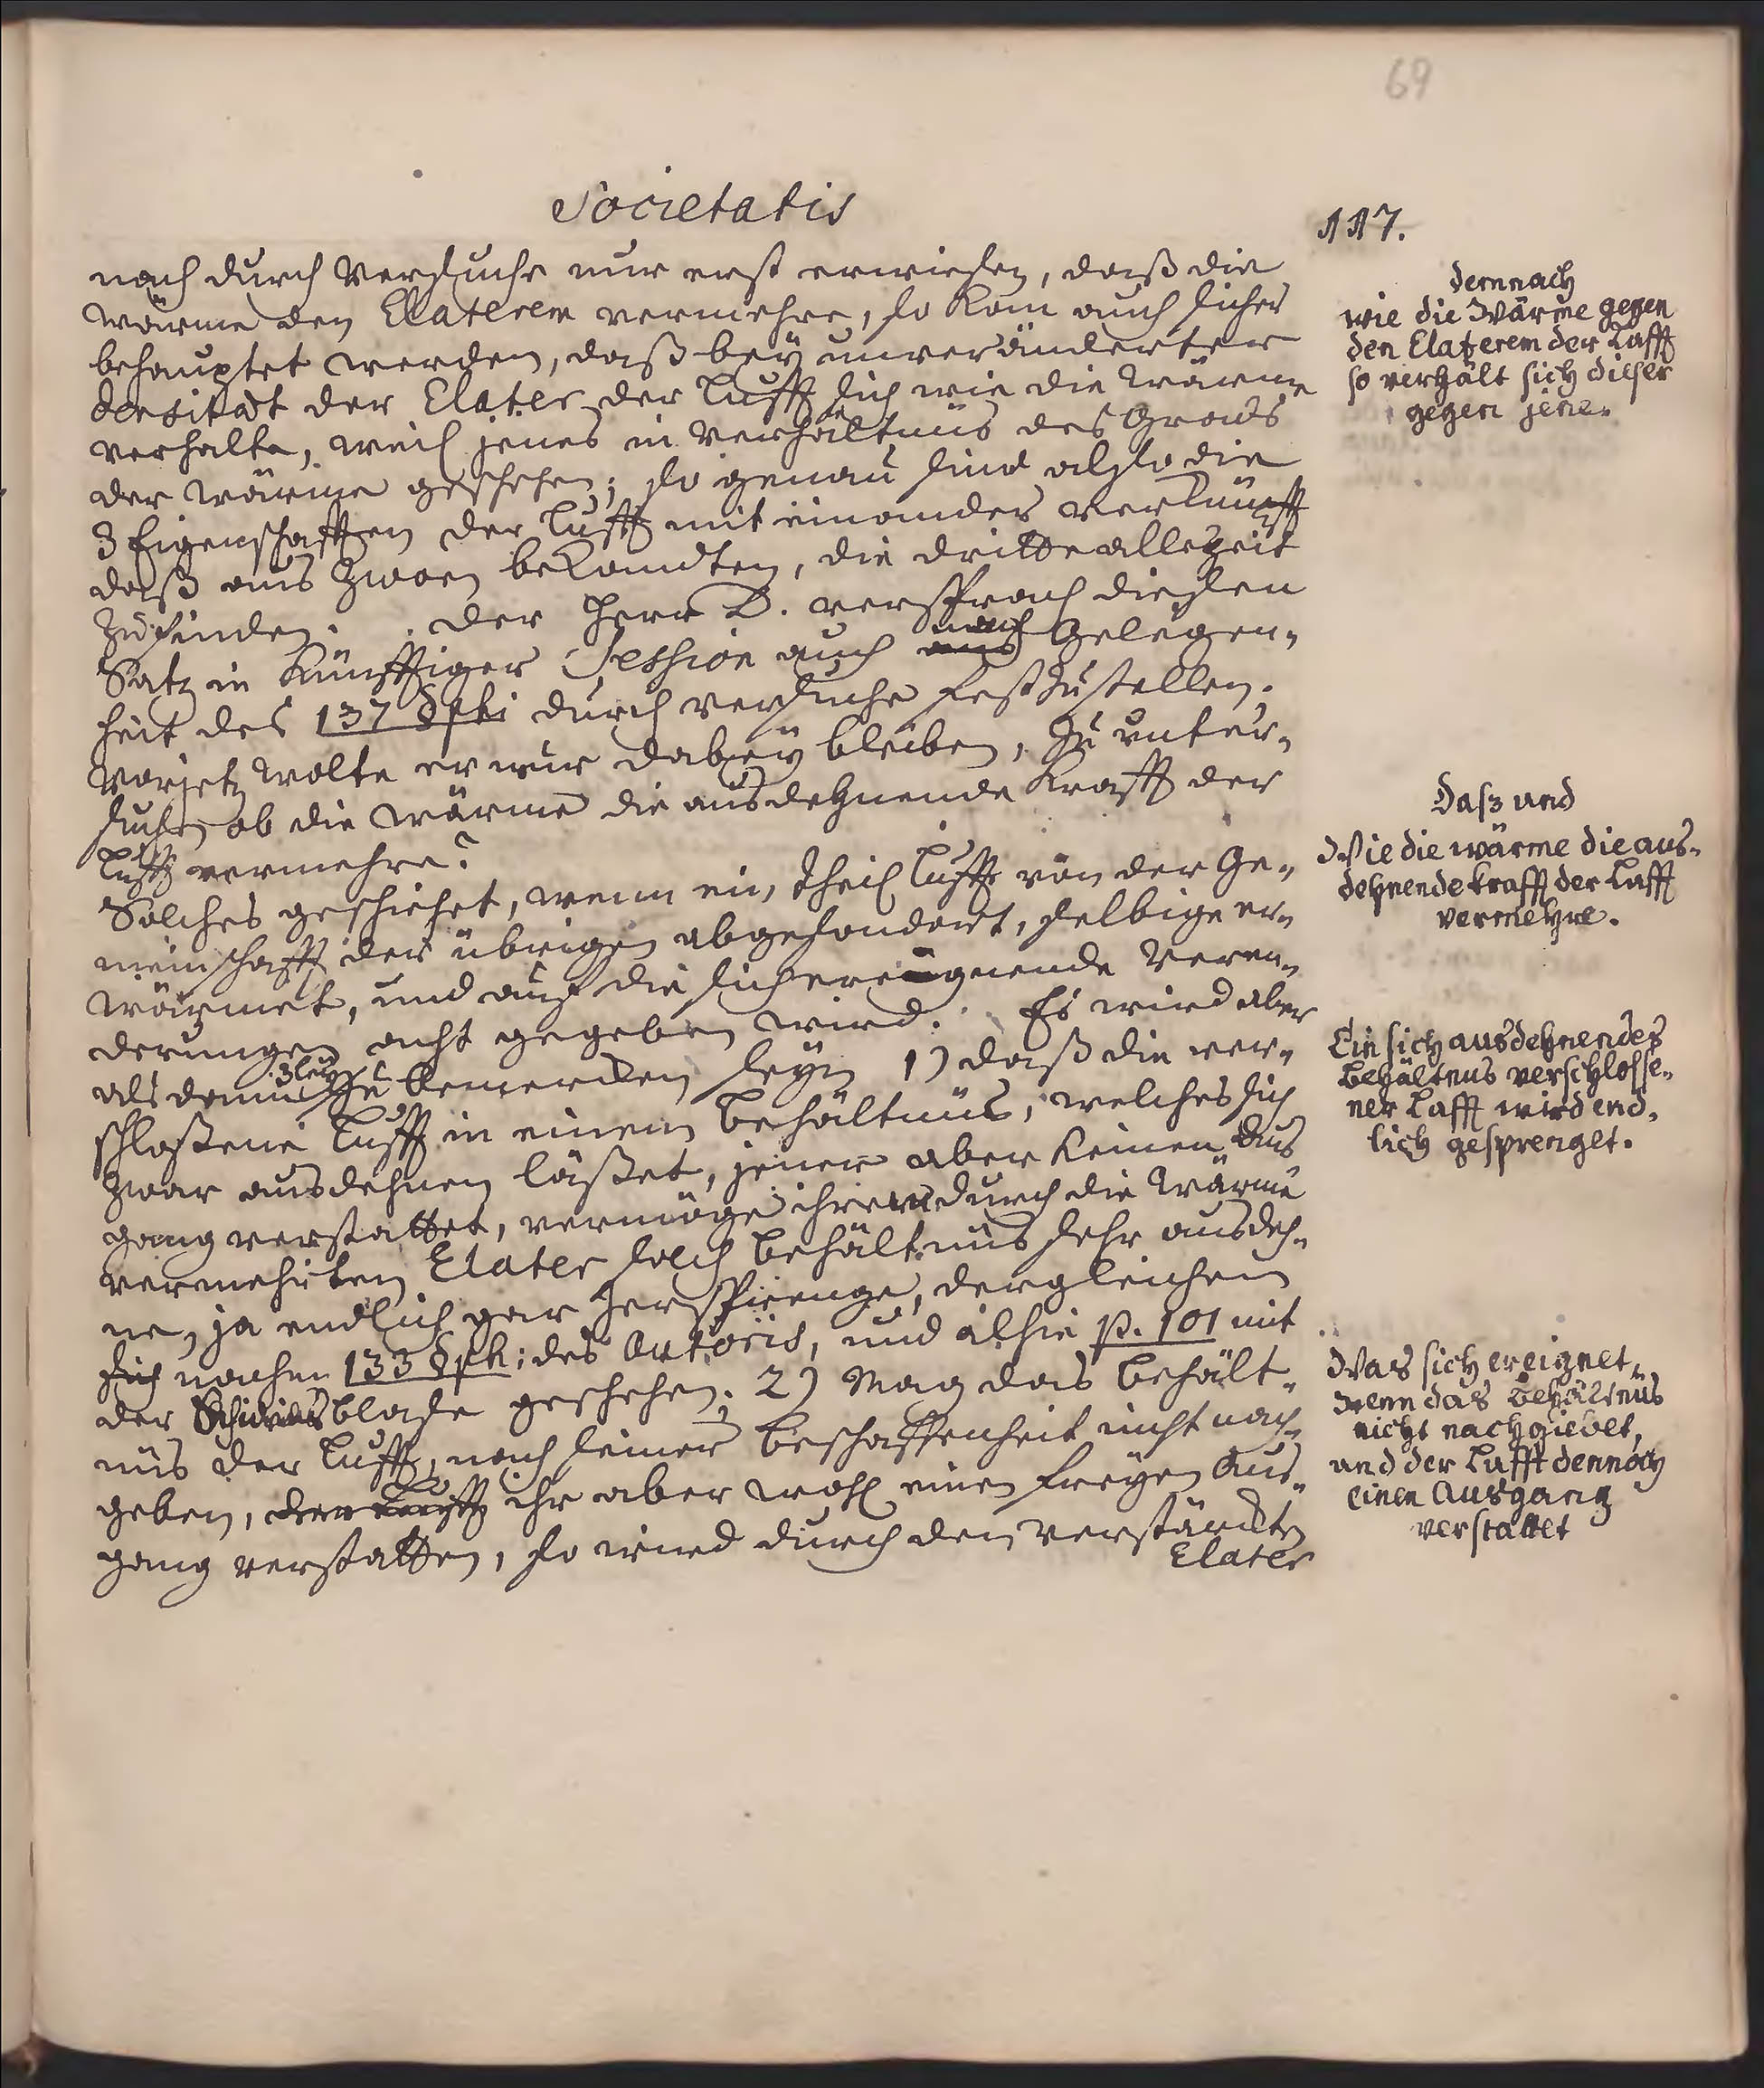 69
Societatis
117.
nach durch Versuche nur erst erwiesen, daß die
Wärme den Elaterem vermehre, so kan auch sicher
behauptet werden, daß bey unveränderter
densitæt der Elater der Lufft sich wie die Wärme
verhalte, weil jenes in Verhältnüs des Grads
der Wärme geschehen; so genau sind also die
3 Eigenschafften der Lufft mit einander verknüpfft
daß aus zwoen bekandten, die dritte allezeit
zu finden. Der Herr D. versprach diesen
Satz in künfftiger Session auch nach Gelegen-
heit des 137 §phi durch versuche fest zustellen.
Vorjetz wolte er nur dabey bleiben, zu unter-
suchen ob die Wärme die ausdehnende Krafft der
Lufft vermehre?
Solches geschiehet, wenn ein Theil Lufft von der Ge-
meinschafft der übrigen abgesondert, selbige er-
wärmet, und auf die sich ereugnende Veren-
derungen acht gegeben wird. Es wird aber
als denn 3ley zu bemercken seyn 1) daß die ver-
schloßene Lufft in einem Behältnüs, welches sich
zwar ausdehnen läßet, jener aber keinen Aus
gang verstattet, vermöge ihres durch die Wärme
vermehrten Elater solch Behältnüs sehr ausdeh-
ne, ja endlich gar zersprenge, dergleichen
sich nachm 133 §ph: des Autoris, und alhie p. 101 mit
der blase geschehen. 2) Mag das Behält-
nüs der Lufft, nach seiner Beschaffenheit nicht nach-
geben, der Lufft ihr aber wohl einen freyen Aus-
gang verstatten, so wird durch den verstärckten
Elater
demnach
wie die Wärme gegen
den Elaterem der Lufft
so verhält sich dieser
gegen jene.
Daß und
Wie die wärme die aus-
dehnende krafft der Lufft
vermehre.
Ein sich ausdehnendes
Behältnus verschlosse-
ner Lufft wird end-
lich gesprenget.
Was sich ereignet,
wenn das Behältnüs
nicht nachgiebet,
und der Lufft dennoch
einen Ausgang
verstattet